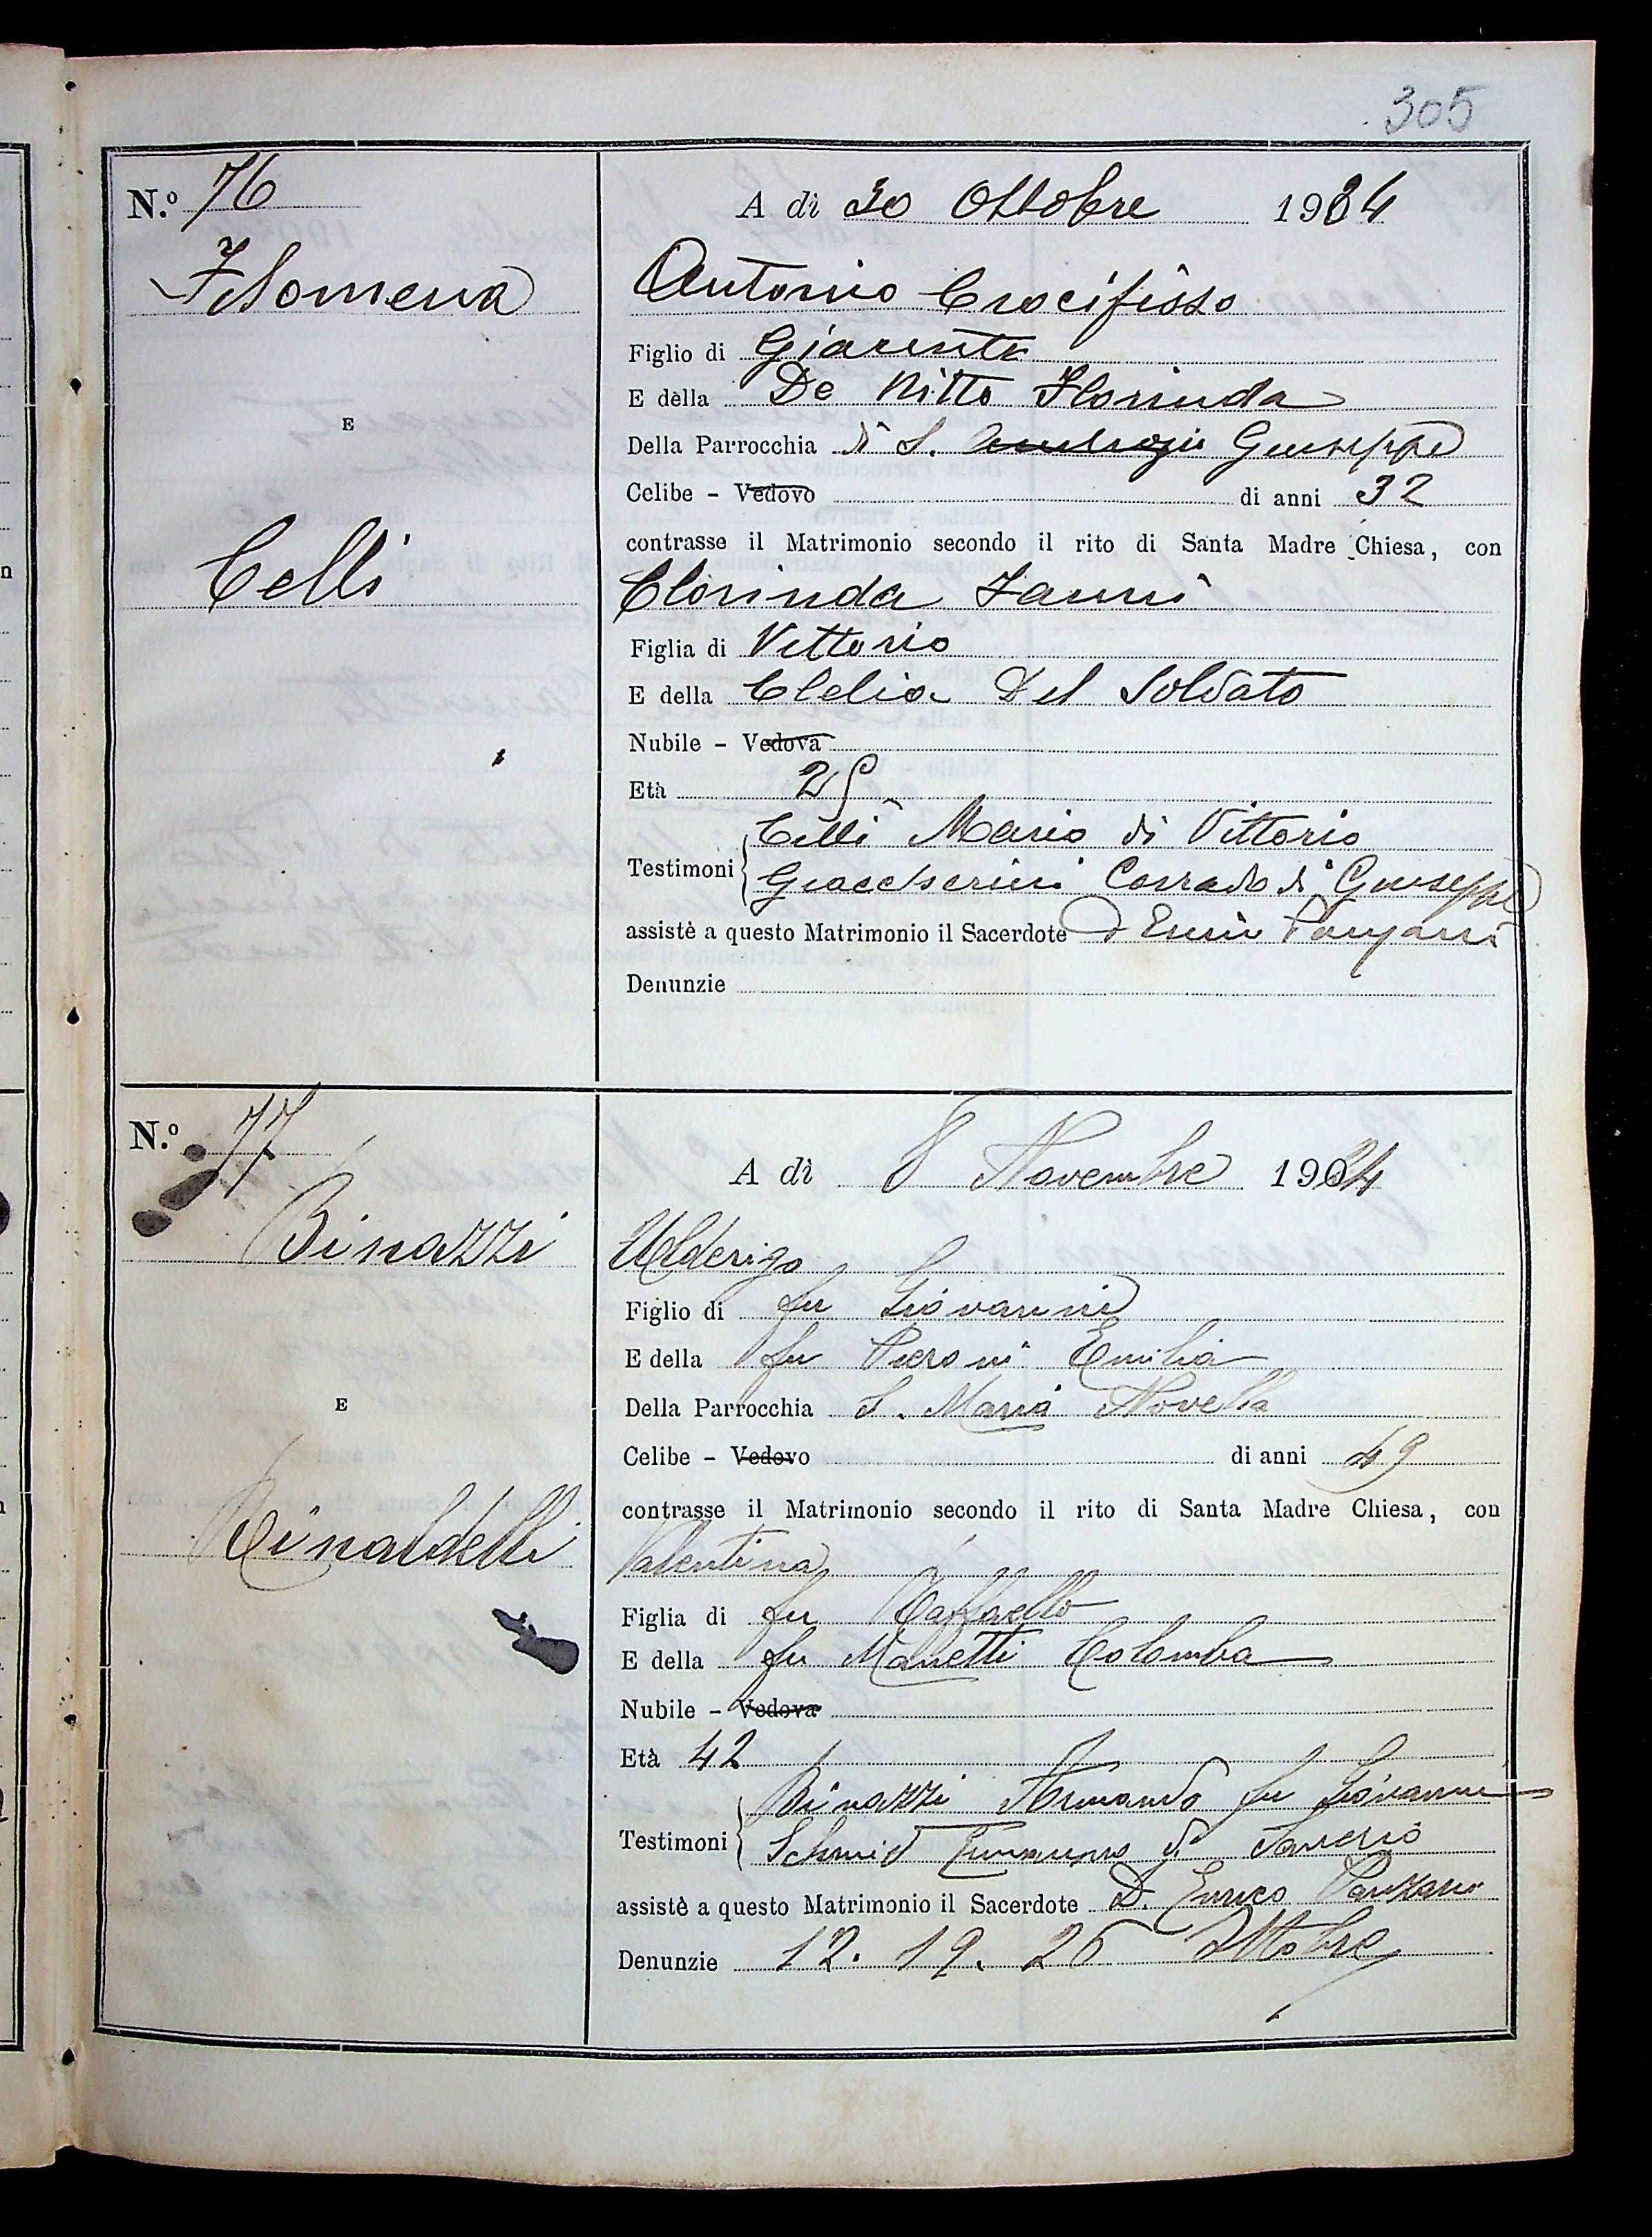 305
N.º 76
A dì 30 Ottobre 1934
Filomena
Antonio Crocifisso
Figlio di Giacinto
E della De Nitto Florinda
E
Della Parrocchia di S. Ambrogio Giuseppe
Celibe - Vedovo di anni 32
contrasse il Matrimonio secondo il rito di Santa Madre Chiesa, con
Celli
Clorinda Fanni
Figlia di Vittorio
E della Clelia Del Soldato
Nubile - Vedova
Età 25
Celli Mario di Vittorio
Testimoni
Giaccherini Corrado di Giuseppe
assistè a questo Matrimonio il Sacerdote D
Denunzie
N.º 77
A dì 8 Novembre 1934
Binazzi
Ulderigo
Figlio di fu Giovanni
E della fu Pieroni Emilia
Della Parrocchia S. Maria Novella
E
Celibe - Vedovo di anni 49
contrasse il Matrimonio secondo il rito di Santa Madre Chiesa, con
Rinaldelli
Valentina
Figlia di fu Raffaello
E della fu Manetti Colomba
Nubile - Vedova
Età 42
Binazzi Armando fu Giovanni
Testimoni
Schmid di Saverio
assistè a questo Matrimonio il Sacerdote D. Enrico Panzani
Denunzie 12. 19. 26 Ottobre